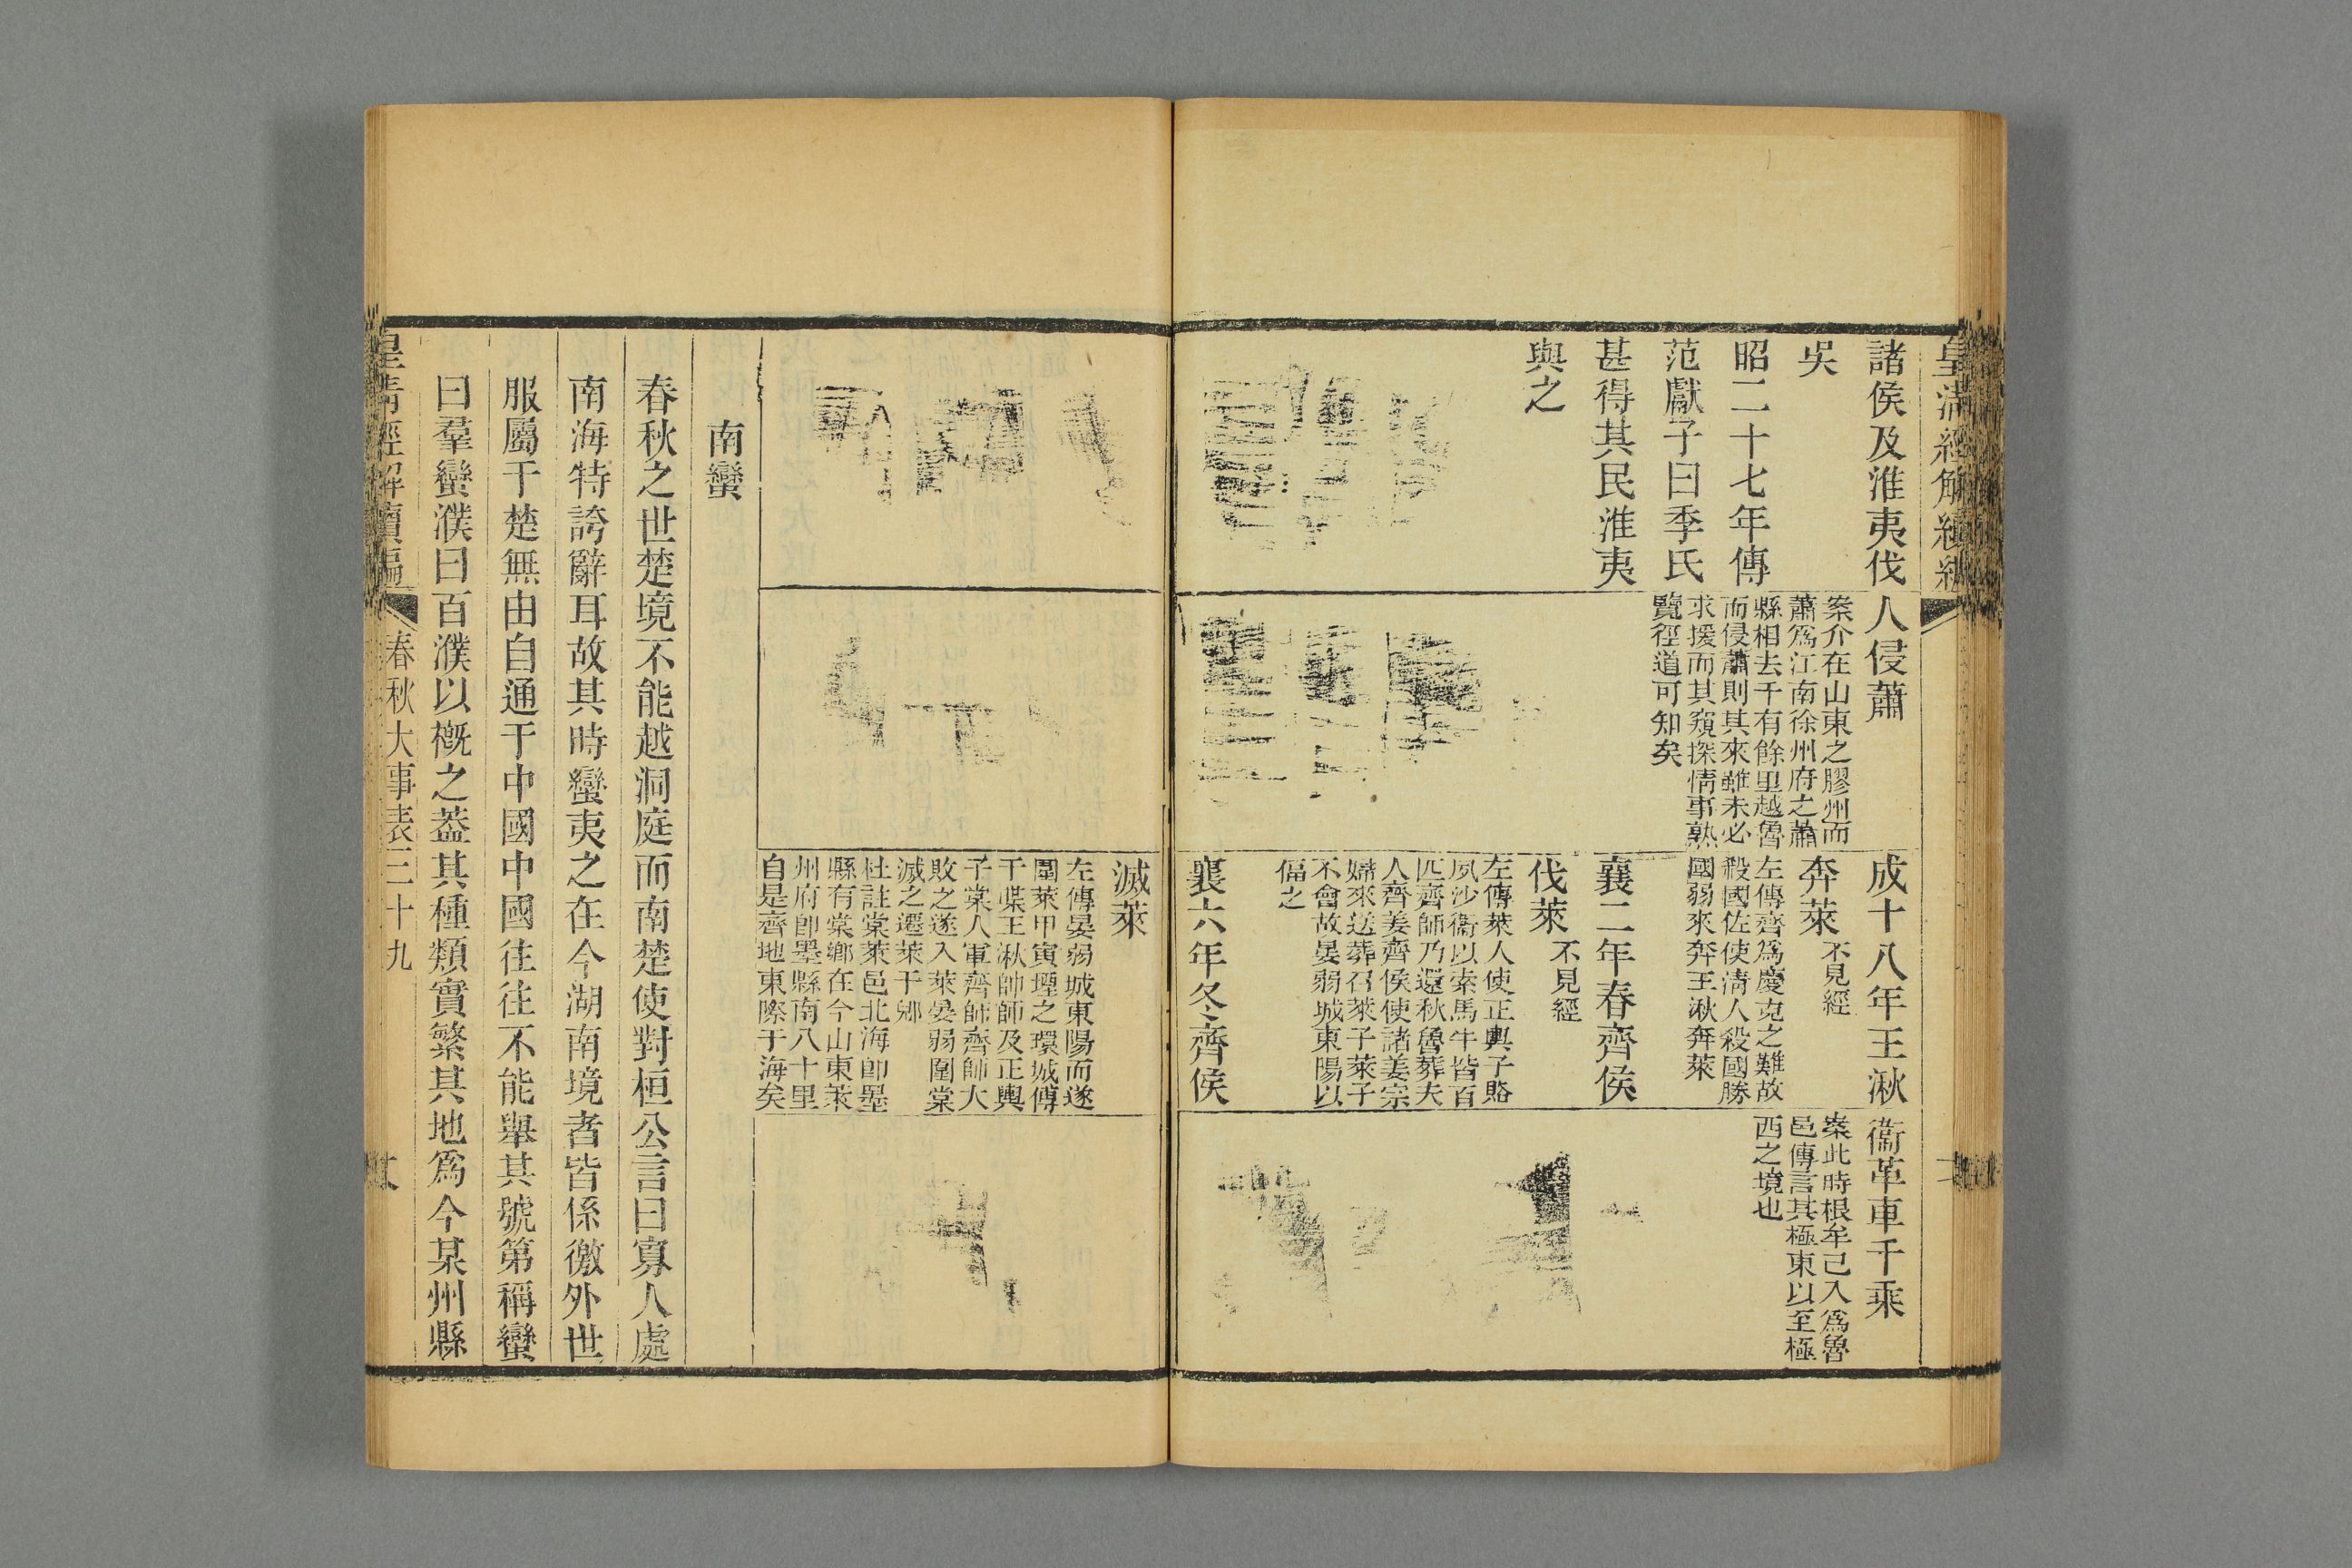 諸侯及淮夷伐
吳
昭二十七年傳
范獻子曰季氏
甚得其民淮夷
與之
人侵蕭
案介在山東之膠州而
蕭爲江南徐州府之蕭
縣相去千有餘里越魯
而侵蕭則其來雖未必
求援而其窺探情事熟
覽徑道可知矣
成十八年王湫
奔萊不見經
左傳齊爲慶克之難故
殺國佐使淸人殺國勝
國弱來奔王湫奔萊
襄二年春齊侯
伐萊不見經
左傳萊人使正輿子賂
夙沙衞以索馬牛皆百
匹齊師乃還秋魯葬夫
人齊姜齊侯使諸姜宗
婦來送葬召萊子萊子
不會故晏弱城東陽以
偪之
襄六年冬齊侯
衞革車千乘
案此時根牟已入爲魯
邑傳言其極東以至極
西之境也
滅萊
左傳晏弱城東陽而遂
圍萊甲寅堙之環城傅
于堞王湫帥師及正輿
子棠人軍齊師齊師大
敗之遂入萊晏弱圍棠
滅之遷萊于郳
杜註棠萊邑北海卽墨
縣有棠鄉在今山東萊
州府卽墨縣南八十里
自是齊地東際于海矣
南蠻
春秋之世楚境不能越洞庭而南楚使對桓公言曰寡人處
南海特誇辭耳故其時蠻夷之在今湖南境者皆係徼外世
服屬于楚無由自通于中國中國往往不能舉其號第稱蠻
曰羣蠻濮曰百濮以槪之蓋其種類實繁其地爲今某州縣
皇淸經解續編
春秋大事表三十九